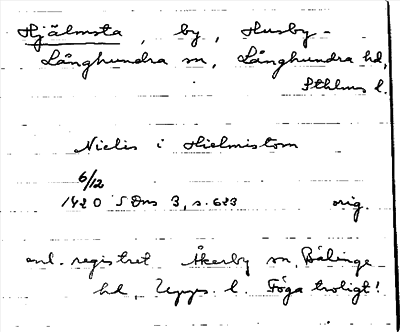 Hjälmsta, by, Husby-
Långhundra sn, Långhundra hd,
Sthlms l.
Niclis i Hielmistom
6/12
1420 SDns 3, s. 623 orig.
enl. registret Åkerby sn, Bälinge
hd, Upps. l. Föga troligt!